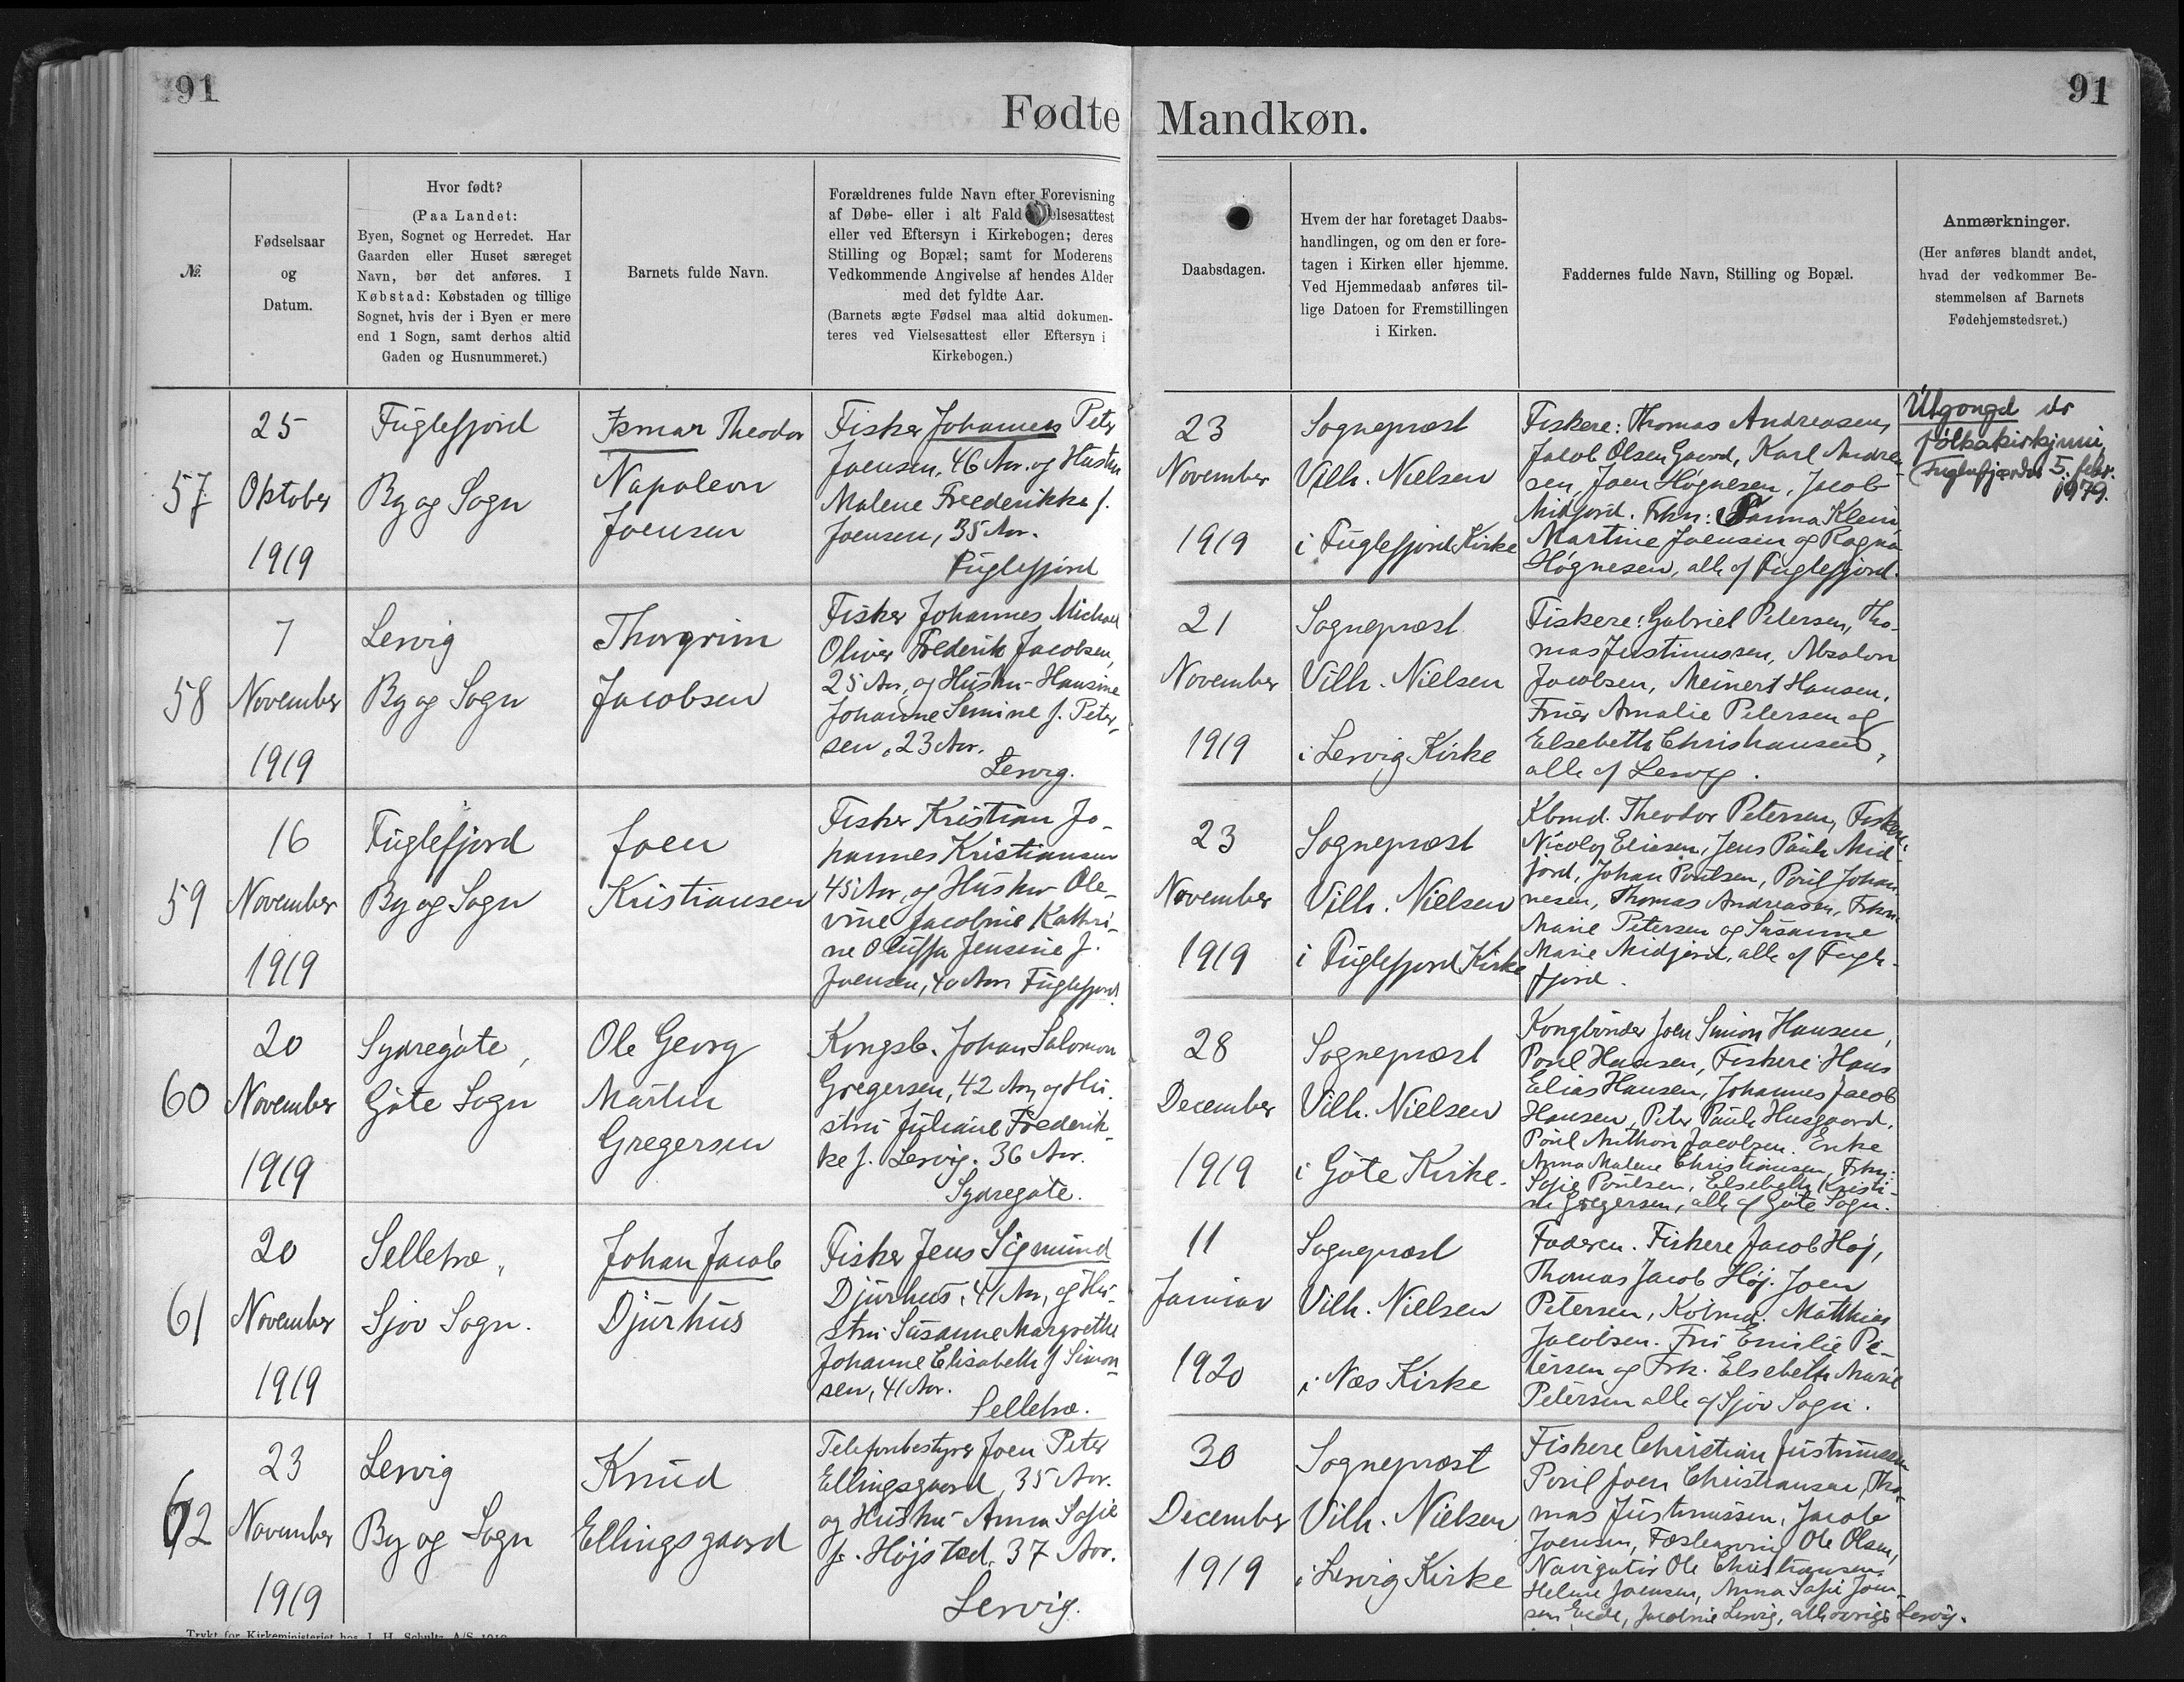 91
91
Fødte Mandkøn.
№
Fødselsaar
og
Datum.
Hvor født?
(Paa Landet:
Byen, Sognet og Herredet. Har
Gaarden eller Huset særeget
Navn, bør det anføres. I
Købstad: Købstaden og tillige
Sognet, hvis der i Byen er mere
end 1 Sogn, samt derhos altid
Gaden og Husnummeret.)
Barnets fulde Navn.
Forældrenes fulde Navn efter Forevisning
af Døbe- eller i alt Fald elsesattest
eller ved Eftersyn i Kirkebogen; deres
Stilling og Bopæl; samt for Moderens
Vedkommende Angivelse af hendes Alder
med det fyldte Aar.
(Barnets ægte Fødsel maa altid dokumen-
teres ved Vielsesattest eller Eftersyn i
Kirkebogen.)
Daabsdagen.
Hvem der har foretaget Daabs-
handlingen, og om den er fore-
tagen i Kirken eller hjemme.
Ved Hjemmedaab anføres til-
lige Datoen for Fremstillingen
i Kirken.
Faddernes fulde Navn, Stilling og Bopæl.
Anmærkninger.
(Her anføres blandt andet,
hvad der vedkommer Be-
stemmelsen af Barnets
Fødehjemstedsret.)
57
25
Oktober
1919
Fuglefjord
By og Sogn
Ismar Theodor
Napoleon
Joensen
Fisker Johannes Peter
Joensen, 46 Aar. og Hustru
Malene Frederikke f.
Joensen, 35 Aar.
Fuglefjord
23
November
1919
Sognepræst
Vilh. Nielsen
i Fuglefjord Kirke
Fiskere: Thomas Andreasen,
Jacob Olsen Gaard, Karl Andrea-
sen, Joen Høgnesen, Jacob
Midjord. Frkn: Sanna Klein
Martine Joensen og Ragna
Høgnesen, alle af Fuglefjord.
Útgongd úr
fólkakirkjuni
Fuglafjørdur 5. febr.
1979.
58
7
November
1919
Lervig
By og Sogn
Thorgrim
Jacobsen
Fisker Johannes Michael
Oliver Frederik Jacobsen,
25 Aar, og Hustru Hansine
Johanne Semine f. Peter-
sen, 23 Aar.
Lervig.
21
November
1919
Sognepræst
Vilh. Nielsen
i Lervig Kirke
Fiskere: Gabriel Petersen, Tho-
mas Justinussen, Absalon
Jacobsen, Meinert Hansen,
Fruer Amalie Petersen og
Elsebeth Christiansen,
alle af Lervig.
59
16
November
1919
Fuglefjord
By og Sogn
Joen
Kristiansen
Fisker Kristian Jo-
hannes Kristiansen
45 Aar, og Hustru Ole-
vine Jacobine Kathri-
ne Oluffa Jensine f.
Joensen, 40 Aar Fuglefjord.
23
November
1919
Sognepræst
Vilh. Nielsen
i Fuglefjord Kirke
Kbmd. Theodor Petersen, Fiskere:
Nicolaj Eliasen, Jens Pauli Mid-
jord, Johan Poulsen, Poul Johan-
nesen, Thomas Andreasen, Frkn.
Marie Petersen og Susanne
Marie Midjord, alle af Fugle-
fjord.
60
20
November
1919
Sydregøte,
Gøte Sogn
Ole Georg
Martin
Gregersen
Kongsb. Johan Salomon
Gregersen, 42 Aar, og Hu-
stru Juliane Frederik-
ke f. Lervig. 36 Aar.
Sydregøte.
28
December
1919
Sognepræst
Vilh. Nielsen
i Gøte Kirke.
Kongbønder Joen Simon Hansen,
Poul Hansen, Fiskere: Hans
Elias Hansen, Johannes Jacob
Hansen, Peter Pauli Husgaard,
Poul Anthon Jacobsen. Enke
Anna Malene Christiansen, Frkn:
Sofie Poulsen, Elsebeth Kristi-
ne Gregersen, alle af Gøte Sogn.
61
20
November
1919
Selletræ,
Sjov Sogn.
Johan Jacob
Djurhus
Fisker Jens Sigmund
Djurhus, 41 Aar, og Hu-
stru Susanne Margrethe
Johanne Elisabeth f. Simon-
sen, 41 Aar.
Selletræ.
11
Januar
1920
Sognepræst
Vilh. Nielsen
i Næs Kirke
Faderen. Fiskere Jacob Høj,
Thomas Jacob Høj. Joen
Petersen, Købmd. Matthias
Jacobsen. Fru Emilie Pe-
tersen og Frk. Elsebeth Marie
Petersen alle af Sjov Sogn.
62
23
November
1919
Lervig
By og Sogn
Knud
Ellingsgaard
Telefonbestyrer Joen Peter
Ellingsgaard, 35 Aar.
og Hustru Anna Sofie
f. Højsted, 37 Aar.
Lervig.
30
December
1919
Sognepræst
Vilh. Nielsen
i Lervig Kirke
Fiskere Christian Justinussen
Poul Joen Christiansen, Tho-
mas Justinussen, Jacob
Joensen, Ole Olsen,
Navigatør Ole Christiansen.
Helene Joensen, Anna Sofie Joen-
sen Jacobine Lervig, alle Lervig.
Trykt for Kirkeministeriet hos J. H. Schultz A/S